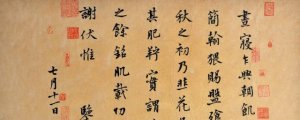 晝寢乍興輖飢
簡翰猥賜盤
秋之初乃韭花
其肥羜實謂
之餘銘肌載切
謝伏惟
七月十一日